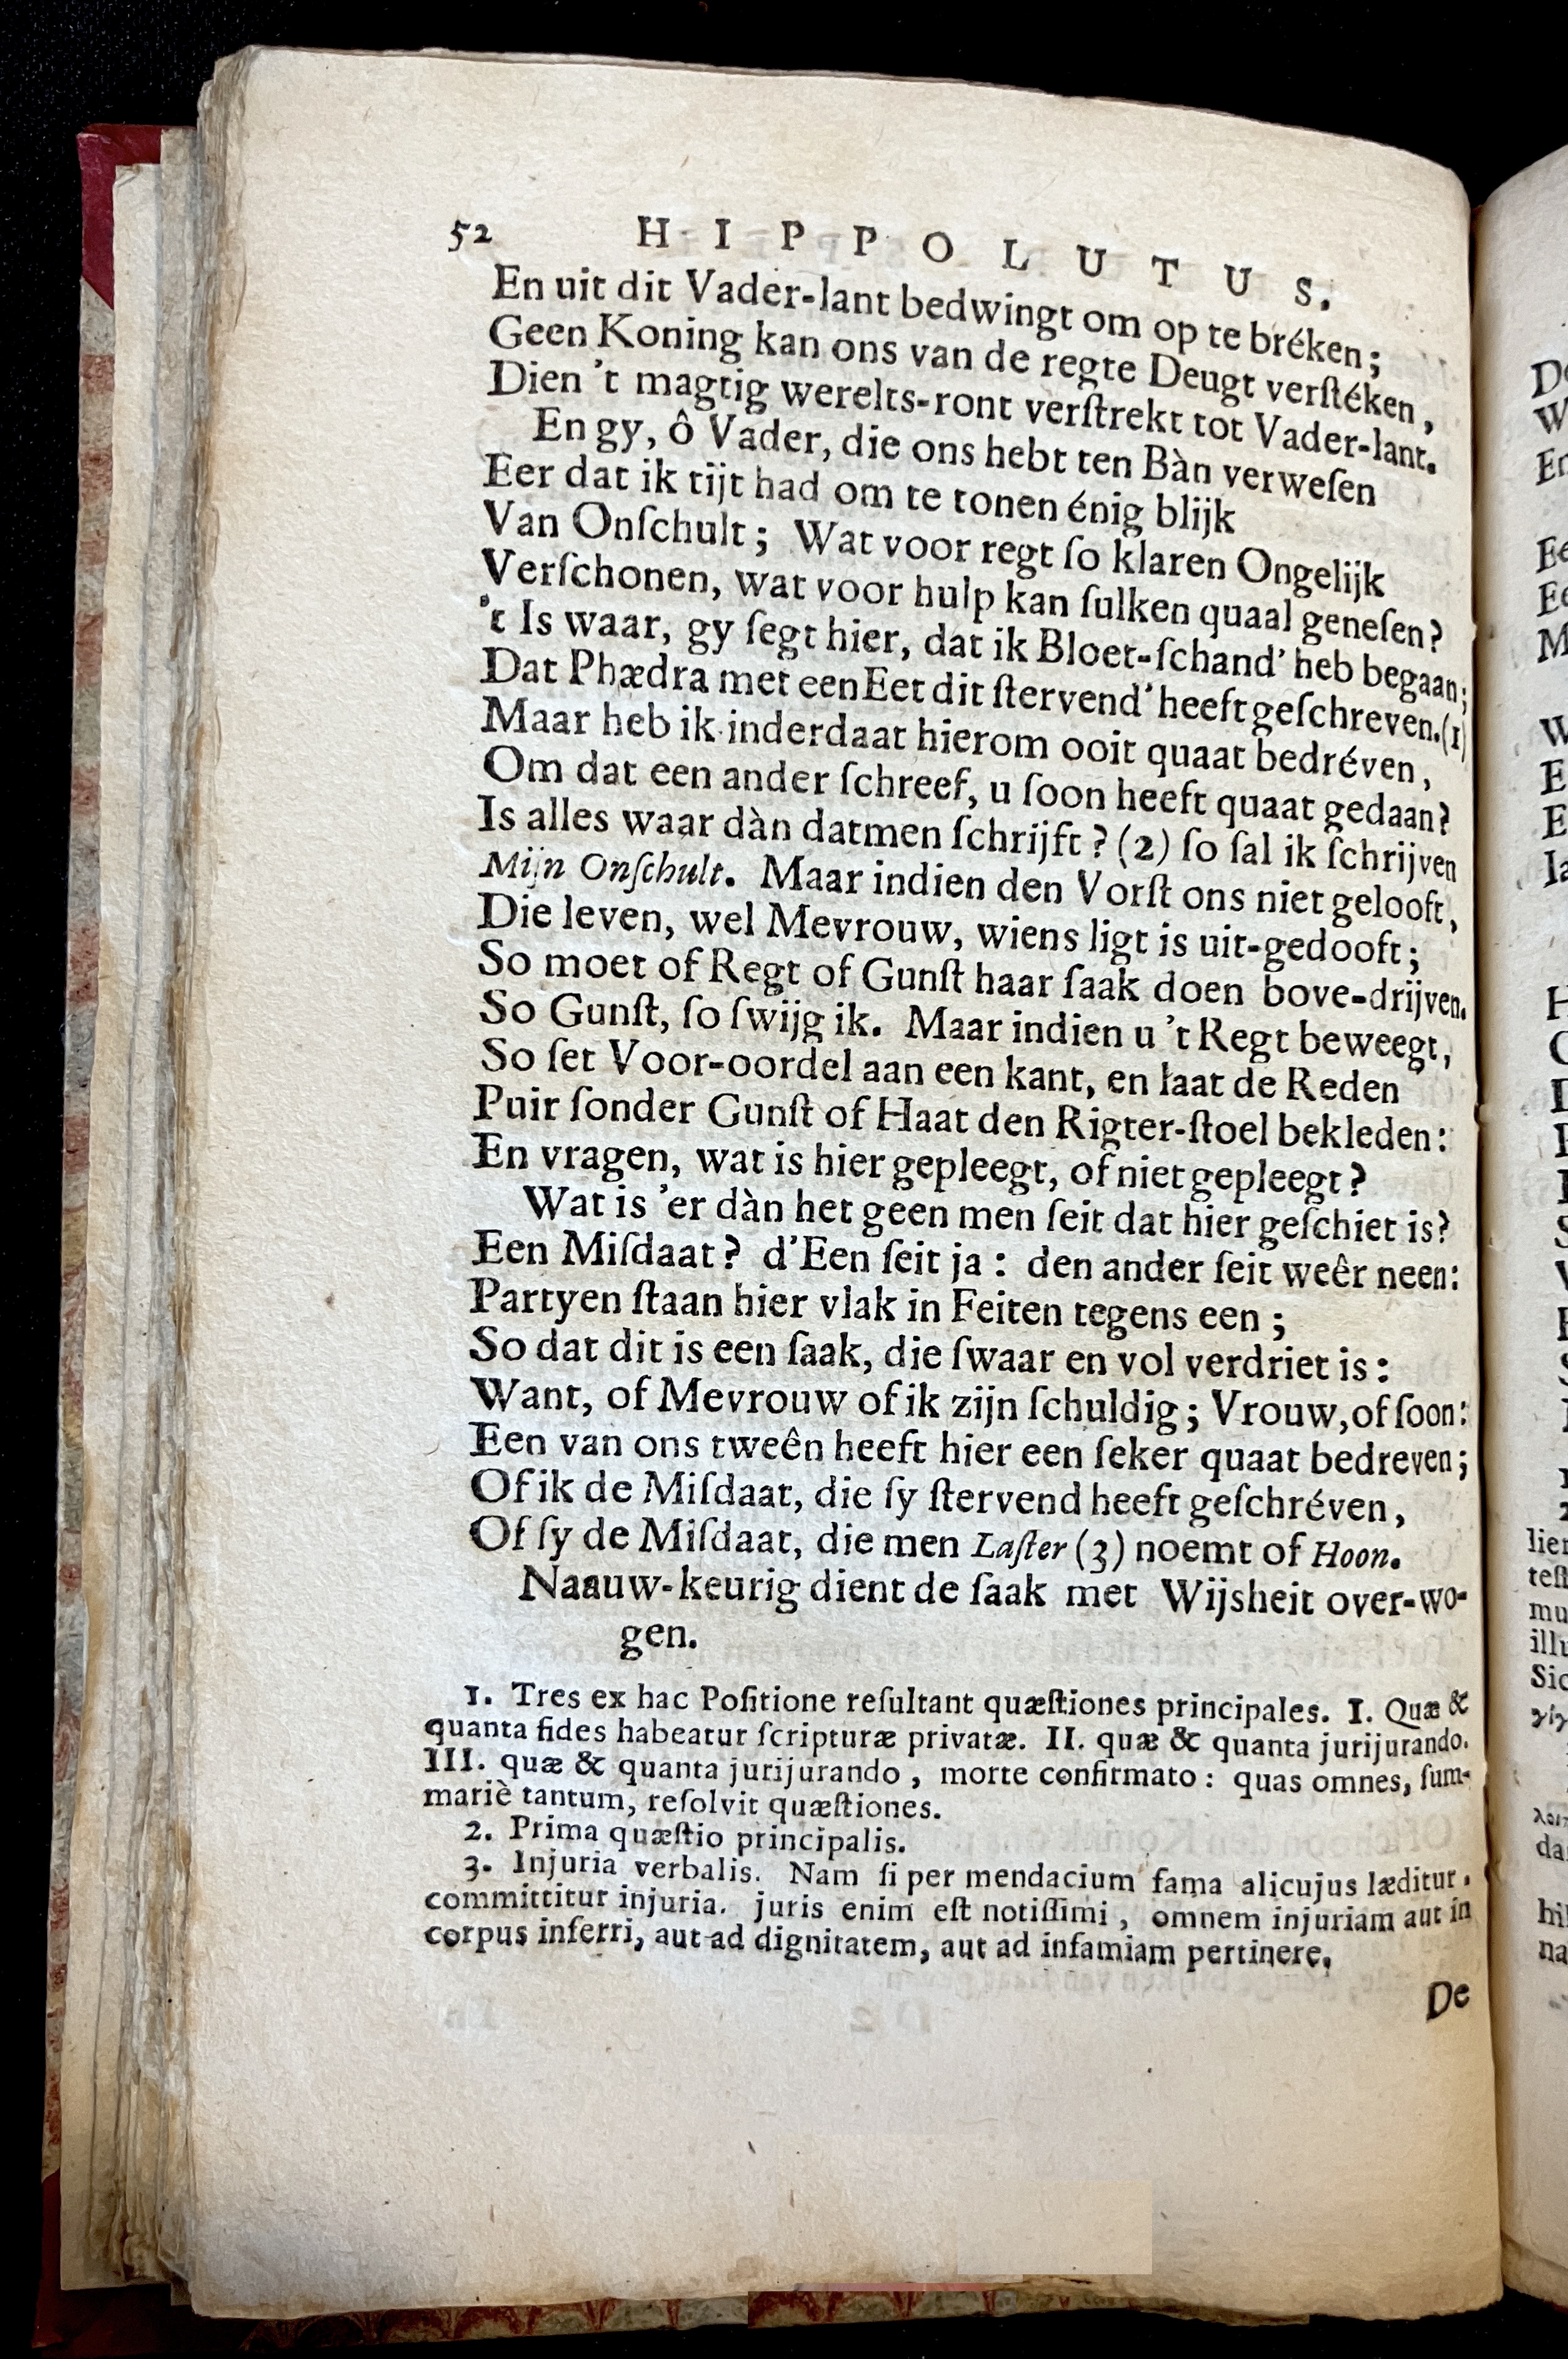 52 HIPPOLUTUS.
En uit dit Vader-lant bedwingt om op te bréken;
Geen Koning kan ons van de regte Deugt verſtéken,
Dien 't magtig werelts-ront verſtrekt tot Vader-lant.
En gy, ô Vader, die ons hebt ten Bàn verweſen
Eer dat ik tijt had om te tonen énig blijk
Van Onſchult; Wat voor regt ſo klaren Ongelijk
Verſchonen, wat voor hulp kan ſulken quaal geneſen?
't Is waar, gy ſegt hier, dat ik Bloet-ſchand' heb begaan;
Dat Phædra met een Eet dit ſtervend' heeft geſchreven.(1)
Maar heb ik inderdaat hierom ooit quaat bedréven,
Om dat een ander ſchreef, u ſoon heeft quaat gedaan?
Is alles waar dàn datmen ſchrijft? (2) ſo ſal ik ſchrijven
Mijn Onſchult. Maar indien den Vorſt ons niet gelooft,
Die leven, wel Mevrouw, wiens ligt is uit-gedooft;
So moet of Regt of Gunſt haar ſaak doen bove-drijven.
So Gunſt, ſo ſwijg ik. Maar indien u 't Regt beweegt,
So ſet Voor-oordel aan een kant, en laat de Reden
Puir ſonder Gunſt of Haat den Rigter-ſtoel bekleden:
En vragen, wat is hier gepleegt, of niet gepleegt?
Wat is 'er dàn het geen men ſeit dat hier geſchiet is?
Een Miſdaat? d'Een ſeit ja: den ander ſeit weêr neen:
Partyen ſtaan hier vlak in Feiten tegens een;
So dat dit is een ſaak, die ſwaar en vol verdriet is:
Want, of Mevrouw of ik zijn ſchuldig; Vrouw, of ſoon:
Een van ons tweên heeft hier een ſeker quaat bedreven;
Of ik de Miſdaat, die ſy ſtervend heeft geſchréven,
Of ſy de Miſdaat, die men Laſter (3) noemt of Hoon.
Naauw-keurig dient de ſaak met Wijsheit over-wo-
gen.
1. Tres ex hac Poſitione reſultant quæſtiones principales. I. Quæ &
quanta fides habeatur ſcripturæ privatæ. II. quæ & quanta jurijurando.
III. quæ & quanta jurijurando, morte confirmato: quas omnes, ſum-
mariè tantum, reſolvit quæſtiones.
2. Prima quæſtio principalis.
3. Injuria verbalis. Nam ſi per mendacium fama alicujus læditur,
committitur injuria. juris enim eſt notiſſimi, omnem injuriam aut in
corpus inferri, aut ad dignitatem, aut ad infamiam pertinere.
De